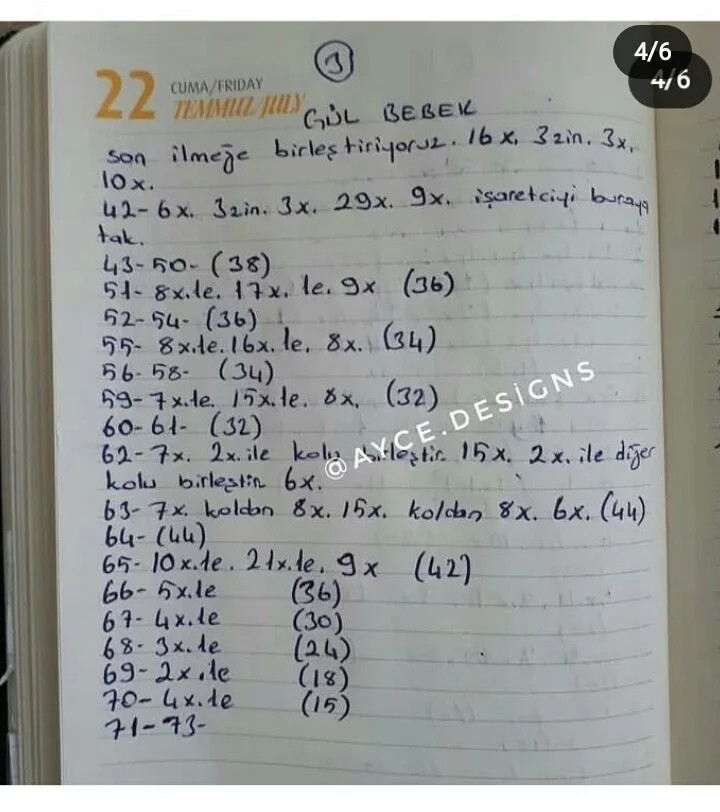 4/6
4/6
3
22 CUMA/FRIDAY
TEMMUZ/JULY
GÜL BEBEK
son ilmeğe birleştiriyoruz. 16x. 3zin. 3x.
10x.
42- 6x. 3zin. 3x. 29x. 9x. işaretciyi buraya
tak.
43-50- (38)
51- 8x.te. 17x. te. 9x (36)
52-54- (36)
55- 8x.te. 16x. te. 8x. (34)
56-58- (34)
59- 7x.te. 15x.te. 8x. (32)
60-61- (32)
62- 7x. 2x. ile kolu birleştir. 15x. 2x. ile diğer
kolu birleştir 6x.
@AYCE.DESİGNS
63- 7x. koldan 8x. 15x. koldan 8x. 6x. (44)
64- (44)
65- 10x.te. 21x.te. 9x (42)
66- 5x.te (36)
67- 4x.te (30)
68- 3x.te (24)
69- 2x.te (18)
70- 4x.te (15)
71-73-